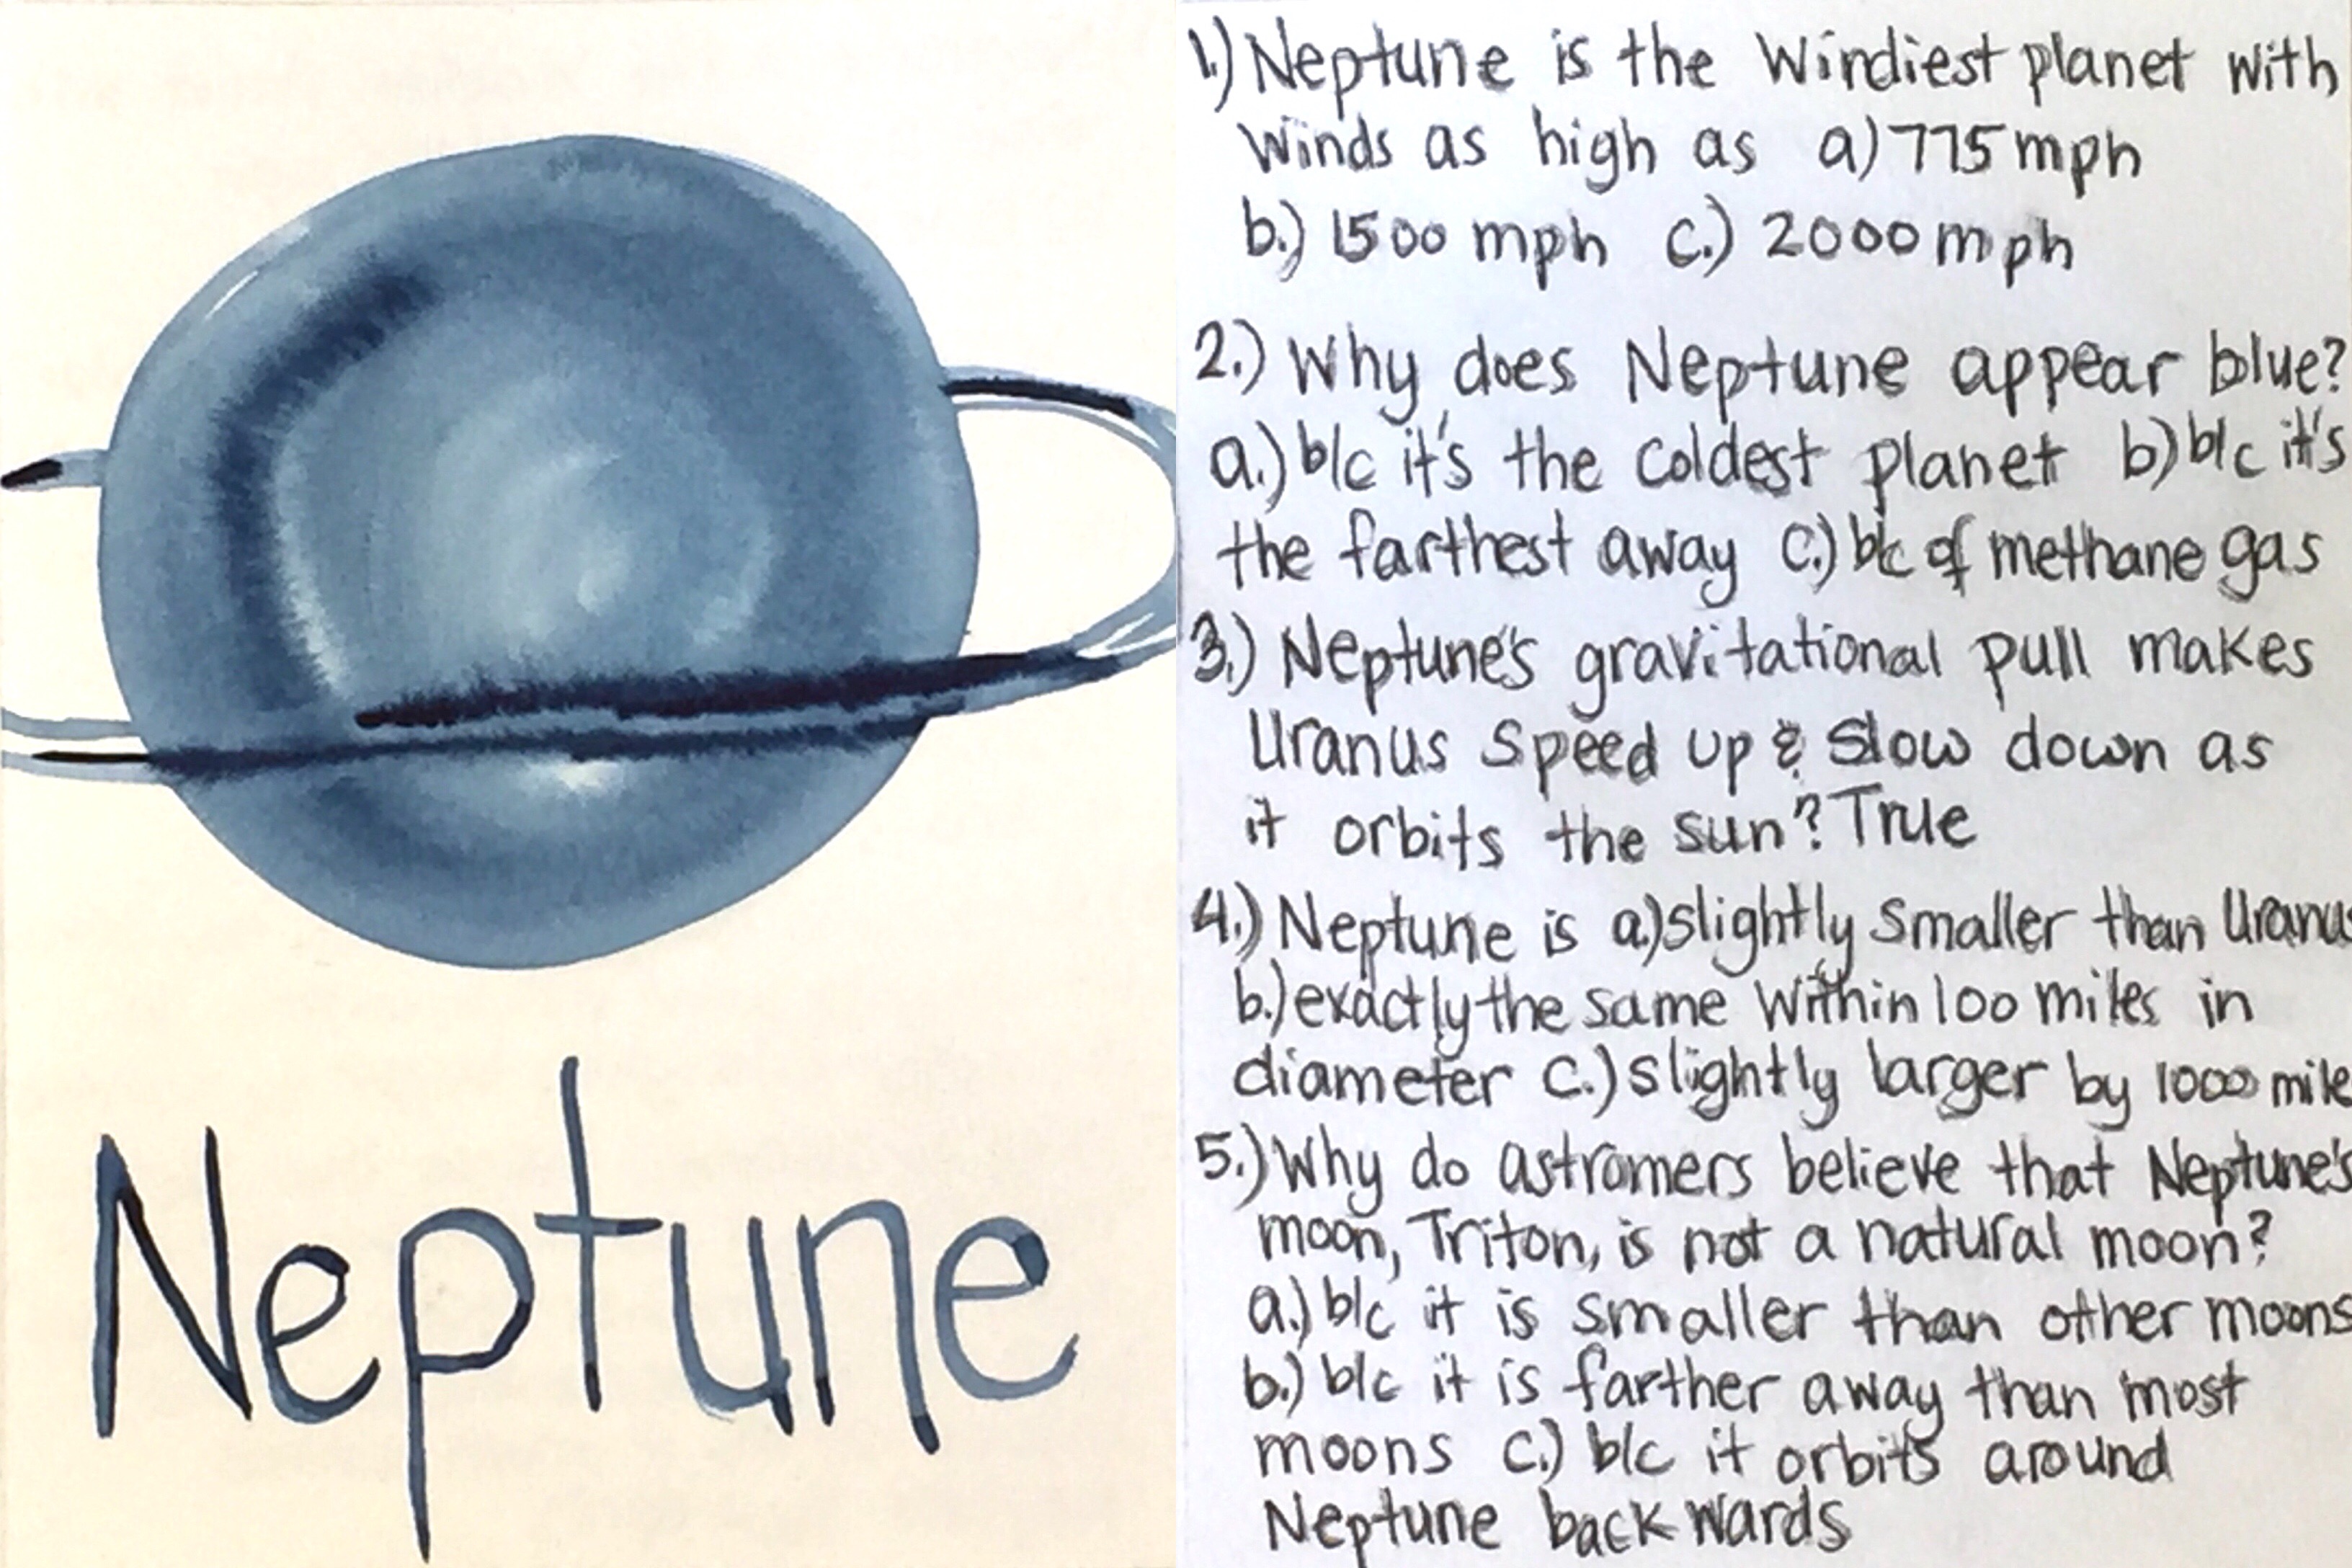 Neptune
1.) Neptune is the Windiest planet with
Winds as high as a) 775 mph
b.) 1500 mph c.) 2000 mph
2.) Why does Neptune appear blue?
a.) b/c it's the coldest planet b) b/c it's
the farthest away c.) b/c of methane gas
3.) Neptune's gravitational pull makes
Uranus speed up & slow down as
it orbits the sun? True
4.) Neptune is a.) slightly smaller than Uranus
b.) exactly the same within 100 miles in
diameter c.) slightly larger by 1000 mile
5.) Why do astromers believe that Neptune's
moon, Triton, is not a natural moon?
a.) b/c it is smaller than other moons
b.) b/c it is farther away than most
moons c.) b/c it orbits around
Neptune backwards